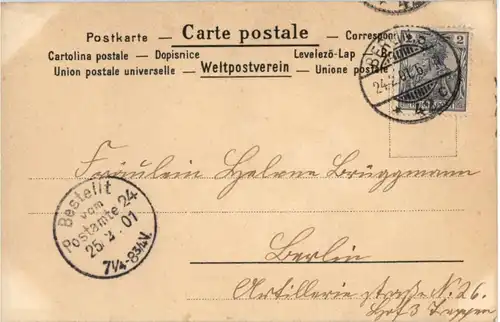 Postkarte — Carte postale — Correspon
Cartolina postale — Dopisnice Levelező-Lap
Union postale universelle — Weltpostverein — Unione postale
2
24.2.01. 6-7N
* 4 c
Fräulein Helene Brüggmann
Bestellt
vom
Postamte 24
25.2.01
7¼-8¾V.
Berlin
Artillerie straße N. 26.
Hof 3 Treppen